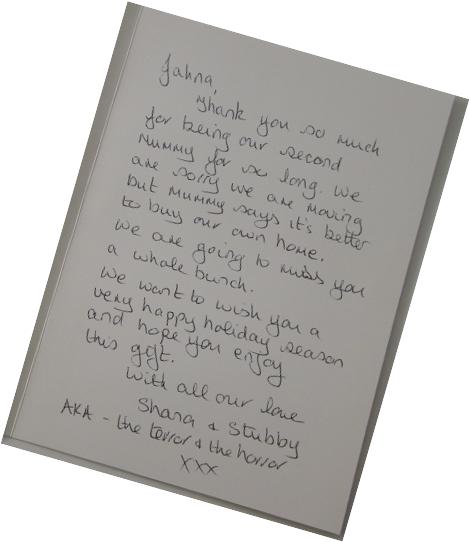 Jahna,
Thank you so much
for being our second
Mummy for so long. We
are sorry we are moving
but Mummy says it's better
to buy our own home.
We are going to miss you
a whole bunch.
We want to wish you a
very happy holiday season
and hope you enjoy
this gift.
With all our love
Shana & Stubby
AKA - the terror & the horror
XXX